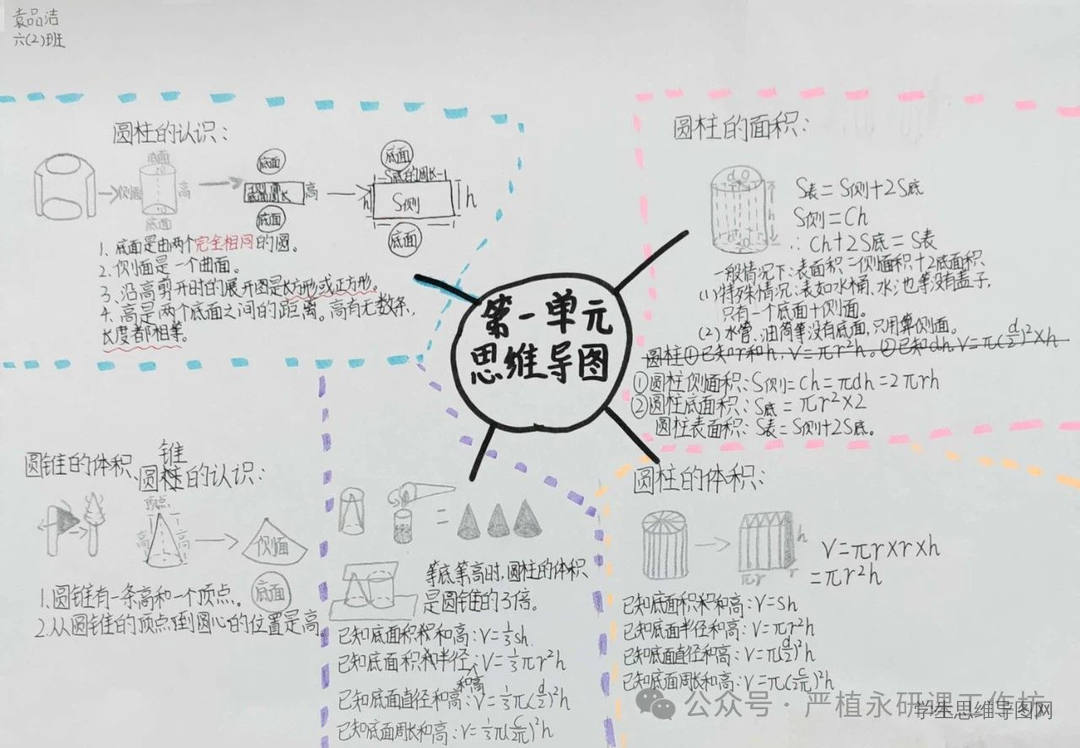 袁品洁
六(2)班
第一单元
思维导图
圆柱的认识:
侧面
底面
底面
高
底面
底面周长
高
底面
底面
S底的周长
h
S侧
h
底面
1. 底面是由两个完全相同的圆。
2. 侧面是一个曲面。
3. 沿高剪开时的展开图是长方形或正方形。
4. 高是两个底面之间的距离。高有无数条,
长度都相等。
圆柱的面积:
d
h
S表=S侧+2S底
S侧=Ch
∴Ch+2S底=S表
一般情况下:表面积=侧面积+2底面积
(1)特殊情况:表如水桶,水池等没有盖子,
只有一个底面+侧面。
(2)水管、油筒等没有底面,只用算侧面。
圆柱①已知r和h,V=πr²h。②已知dh V=π(d/2)²×h
①圆柱侧面积:S侧=Ch=πdh=2πrh
②圆柱底面积:S底=πr²×2
圆柱表面积:S表=S侧+2S底。
圆锥的体积、
锥
圆柱的认识:
顶点
高
高
侧面
底面
1.圆锥有一条高和一个顶点。
2.从圆锥的顶点到圆心的位置是高。
=
等底等高时,圆柱的体积
是圆锥的3倍。
已知底面积和高:V=⅓sh
已知底面积和半径:V=⅓πr²h
和高
已知底面直径和高:V=⅓π(d/2)²h
已知底面周长和高:V=⅓π(C/2π)²h
圆柱的体积:
h
πr
r
V=πr×r×h
=πr²h
已知底面积和高:V=sh
已知底面半径和高:V=πr²h
已知底面直径和高:V=π(d/2)²h
已知底面周长和高:V=π(C/2π)²h
公众号·严植永研课工作坊
学生思维导图网